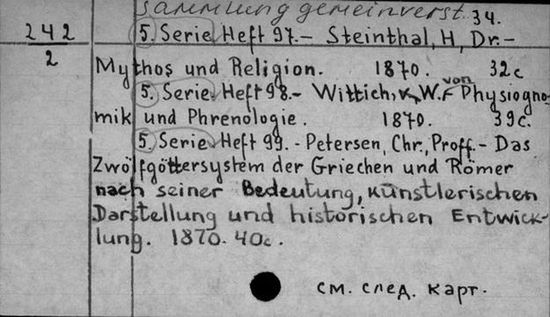 Sammlung gemeinverst. 34.
242
2
5. Serie Heft 97.- Steinthal, H, Dr.-
Mythos und Religion. 1870. 32c
5. Serie Heft 98.- Wittich, W. von Physiogno-
mik und Phrenologie. 1870. 39c.
5. Serie Heft 99.- Petersen, Chr., Proff.- Das
Zwölfgöttersystem der Griechen und Römer
nach seiner Bedeutung, künstlerischen
Darstellung und historischen Entwick-
lung. 1870. 40c.
см. след. карт.